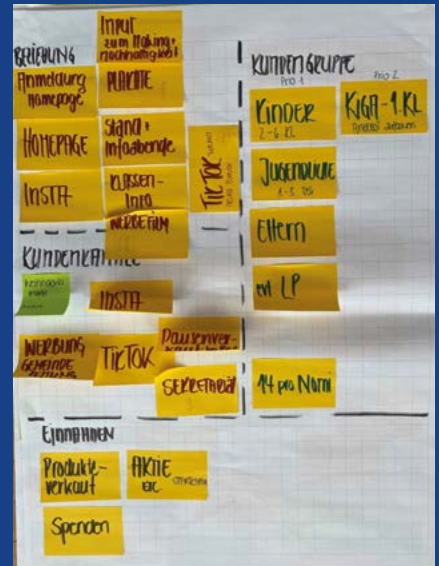 BEZIEHUNG
Input
zum Making +
nachhaltigkeit
Anmeldung
Homepage
PLAKATE
HOMEPAGE
Stand +
Infoabende
TikTok
INSTA
KLASSEN-
Info
WERBEFILM
KUNDENKANÄLE
INSTA
WERBUNG
GEMEINDE
TikTok
Pausenver-
SEKRETARIAT
KUNDENGRUPPE
Prio 1
Prio 2
KINDER
2-6. KL
KIGA - 1. KL
JUGENDLICHE
Eltern
evt LP
14 pro Nami
EINNAHMEN
Produkte-
verkauf
AKTIE
ETC.
Spenden